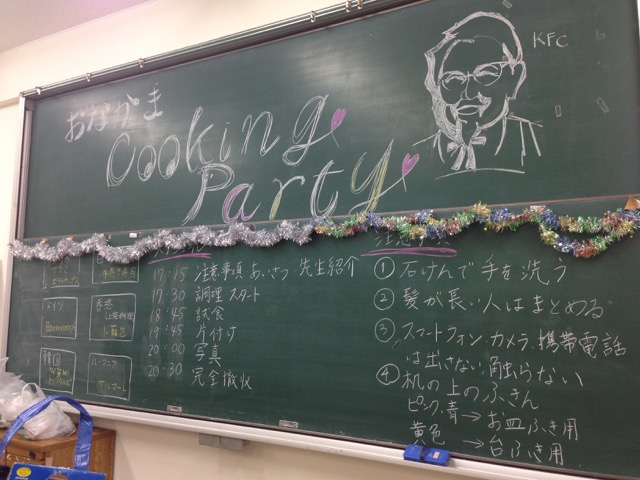 おながま
Cooking
Party
KFC
17:15 注意事項 あいさつ 先生紹介
17:30 調理スタート
18:45 試食
19:45 片付け
20:00 写真
20:30 完全撤収
ドイツ
香港
小籠包
韓国
ルーマニア
サルマーレ
注意事項
① 石けんで手を洗う
② 髪が長い人はまとめる
③ スマートフォン・カメラ・携帯電話
は出さない、触らない
④ 机の上のふきん
ピンク、青→お皿ふき用
黄色 → 台ふき用